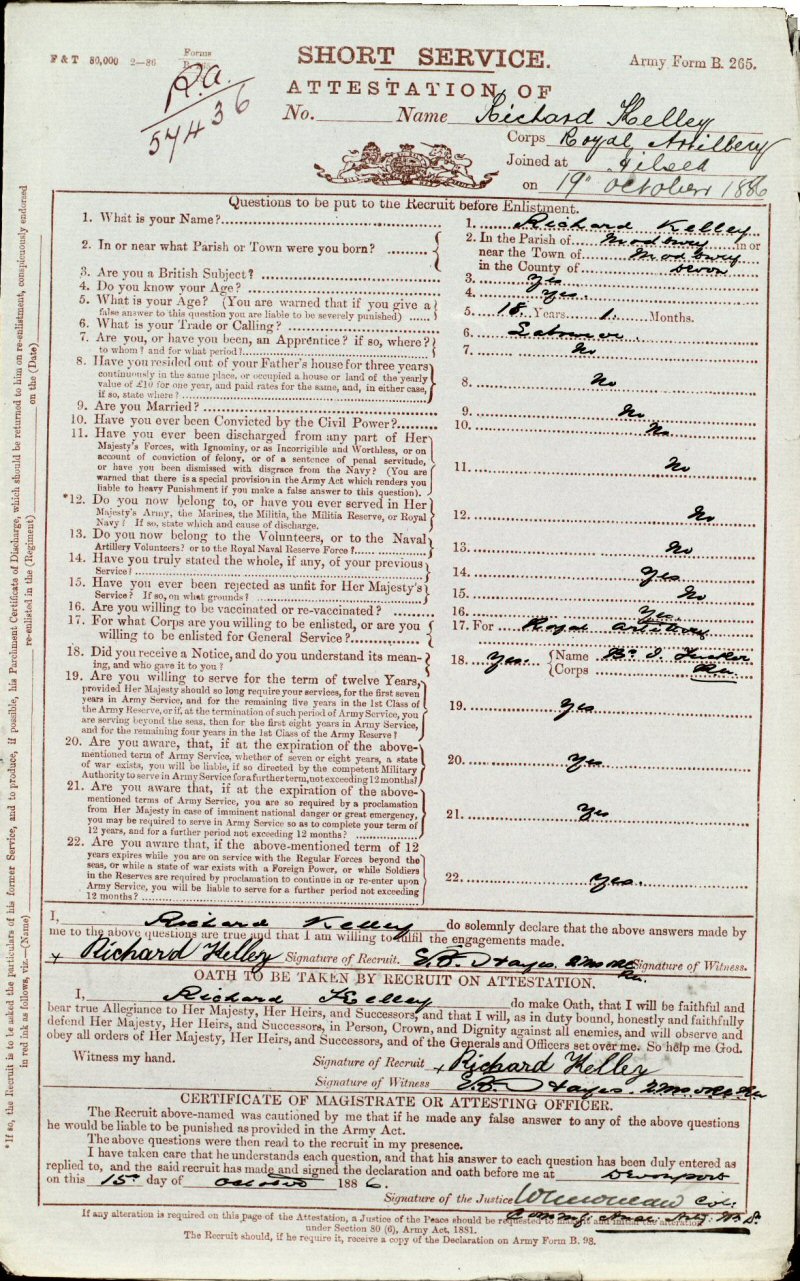 F & T 80,000 2—86 Forms
SHORT SERVICE.
Army Form B. 265.
R.A.
57436
ATTESTATION OF
No. Name Richard Kelley
Corps Royal Artillery
Joined at
on 19" October 1886
Questions to be put to the Recruit before Enlistment.
1. What is your Name? 1. Richard Kelley
2. In or near what Parish or Town were you born? 2. In the Parish of Modbury in or
near the Town of Modbury
in the County of Devon
3. Are you a British Subject? 3. Yes
4. Do you know your Age? 4. Yes.
5. What is your Age? (You are warned that if you give a
false answer to this question you are liable to be severely punished) 5. 18 Years 1 Months.
6. What is your Trade or Calling? 6. Labourer.
7. Are you, or have you been, an Apprentice? if so, where?
to whom? and for what period? 7. No
8. Have you resided out of your Father's house for three years
continuously in the same place, or occupied a house or land of the yearly
value of £10 for one year, and paid rates for the same, and, in either case,
if so, state where? 8. No
9. Are you Married? 9. No
10. Have you ever been Convicted by the Civil Power? 10. No
11. Have you ever been discharged from any part of Her
Majesty's Forces, with Ignominy, or as Incorrigible and Worthless, or on
account of conviction of felony, or of a sentence of penal servitude,
or have you been dismissed with disgrace from the Navy? (You are
warned that there is a special provision in the Army Act which renders you
liable to heavy Punishment if you make a false answer to this question). 11. No
*12. Do you now belong to, or have you ever served in Her
Majesty's Army, the Marines, the Militia, the Militia Reserve, or Royal
Navy? If so, state which and cause of discharge. 12. No
13. Do you now belong to the Volunteers, or to the Naval
Artillery Volunteers? or to the Royal Naval Reserve Force? 13. No
14. Have you truly stated the whole, if any, of your previous
Service? 14. Yes
15. Have you ever been rejected as unfit for Her Majesty's
Service? If so, on what grounds? 15. No
16. Are you willing to be vaccinated or re-vaccinated? 16. Yes
17. For what Corps are you willing to be enlisted, or are you
willing to be enlisted for General Service? 17. For Royal Artillery
18. Did you receive a Notice, and do you understand its mean-
ing, and who gave it to you? 18. Yes. Name Br J. Tucker
Corps RA
19. Are you willing to serve for the term of twelve Years,
provided Her Majesty should so long require your services, for the first seven
years in Army Service, and for the remaining five years in the 1st Class of
the Army Reserve, or if, at the termination of such period of Army Service, you
are serving beyond the seas, then for the first eight years in Army Service,
and for the remaining four years in the 1st Class of the Army Reserve? 19. Yes
20. Are you aware, that, if at the expiration of the above-
mentioned term of Army Service, whether of seven or eight years, a state
of war exists, you will be liable, if so directed by the competent Military
Authority to serve in Army Service for a further term, not exceeding 12 months? 20. Yes
21. Are you aware that, if at the expiration of the above-
mentioned terms of Army Service, you are so required by a proclamation
from Her Majesty in case of imminent national danger or great emergency,
you may be required to serve in Army Service so as to complete your term of
12 years, and for a further period not exceeding 12 months? 21. Yes
22. Are you aware that, if the above-mentioned term of 12
years expires while you are on service with the Regular Forces beyond the
seas, or while a state of war exists with a Foreign Power, or while Soldiers
in the Reserves are required by proclamation to continue in or re-enter upon
Army Service, you will be liable to serve for a further period not exceeding
12 months? 22. Yes.
I, Richard Kelley do solemnly declare that the above answers made by
me to the above questions are true and that I am willing to fulfil the engagements made.
x Richard Kelley Signature of Recruit. Hayes. Signature of Witness.
OATH TO BE TAKEN BY RECRUIT ON ATTESTATION.
I, Richard Kelley do make Oath, that I will be faithful and
bear true Allegiance to Her Majesty, Her Heirs, and Successors, and that I will, as in duty bound, honestly and faithfully
defend Her Majesty, Her Heirs, and Successors, in Person, Crown, and Dignity against all enemies, and will observe and
obey all orders of Her Majesty, Her Heirs, and Successors, and of the Generals and Officers set over me. So help me God.
Witness my hand. Signature of Recruit x Richard Kelley
Signature of Witness Hayes.
CERTIFICATE OF MAGISTRATE OR ATTESTING OFFICER.
The Recruit above-named was cautioned by me that if he made any false answer to any of the above questions
he would be liable to be punished as provided in the Army Act.
The above questions were then read to the recruit in my presence.
I have taken care that he understands each question, and that his answer to each question has been duly entered as
replied to, and the said recruit has made and signed the declaration and oath before me at Devonport
on this 15th day of October 1886.
Signature of the Justice Col:
If any alteration is required on this page of the Attestation, a Justice of the Peace should be requested to make it and initial the alteration
under Section 80 (6), Army Act, 1881.
The Recruit should, if he require it, receive a copy of the Declaration on Army Form B. 98.
*If so, the Recruit is to be asked the particulars of his former Service, and to produce, if possible, his Parchment Certificate of Discharge, which should be returned to him on re-enlistment, conspicuously endorsed
in red ink as follows, viz.—(Name) re-enlisted in the (Regiment) on the (Date)